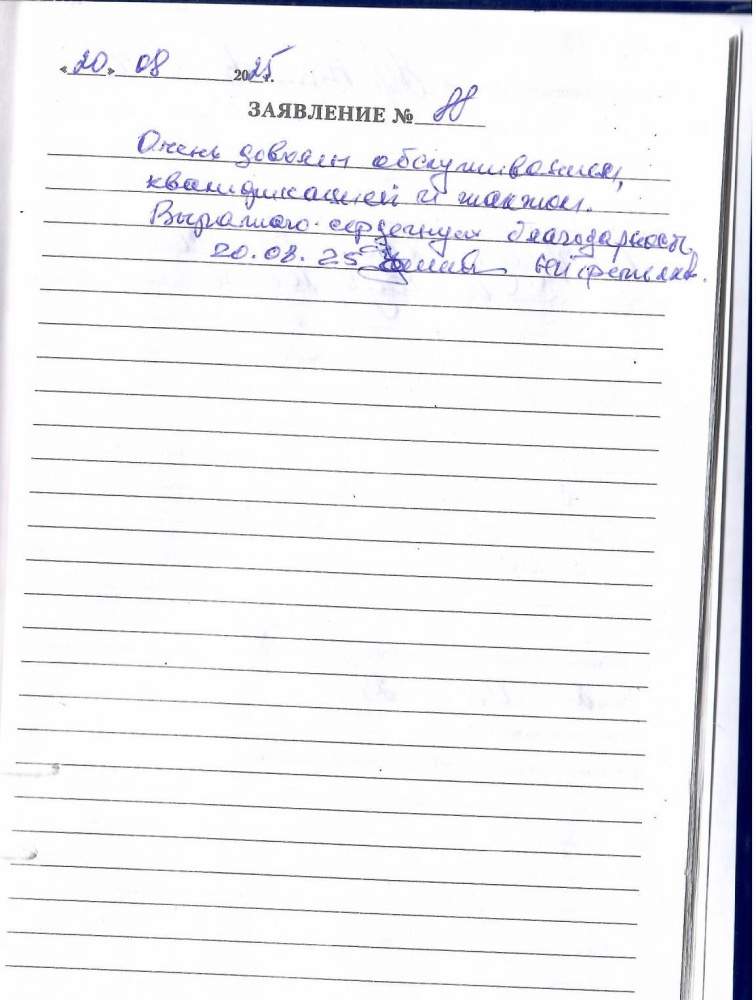 «20» 08 2025 г.
ЗАЯВЛЕНИЕ № 88
Очень доволен обслуживанием,
квалификацией и тактом.
Выражаю сердечную благодарность
20.08.25